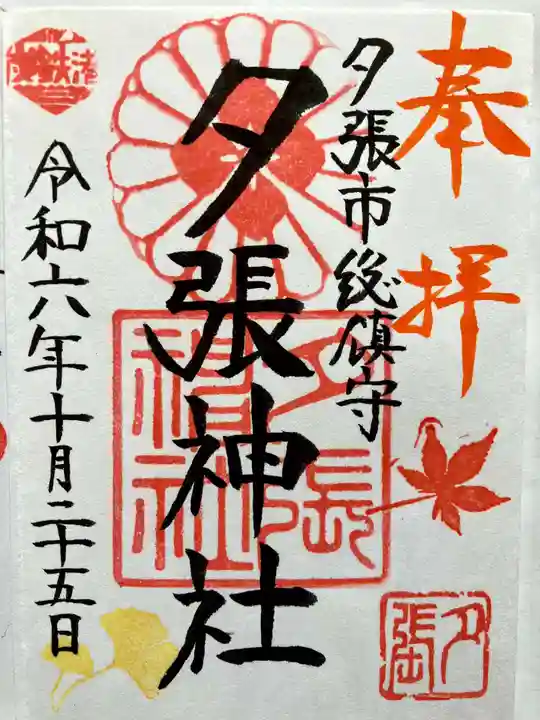 奉拝
夕張市総鎮守
夕張神社
令和六年十月二十五日
夕張
神社
夕張